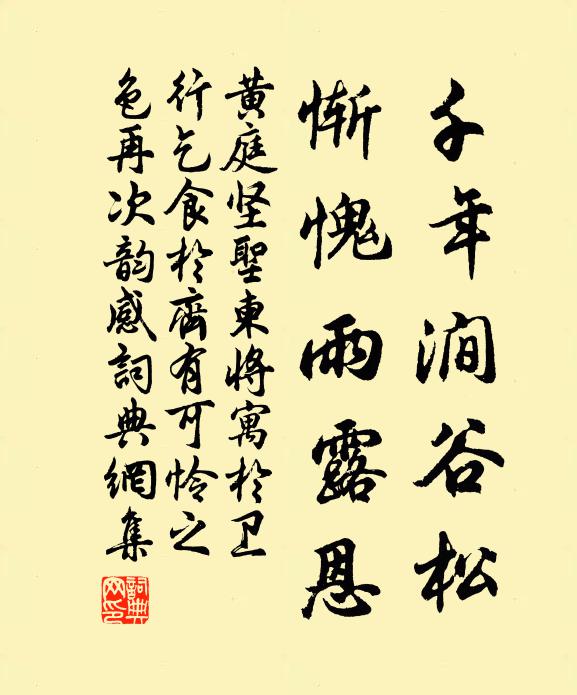 千年澗谷松
慚愧雨露恩
黄庭坚聖東將寓於卫
行乞食於齊有可怜之
色再次韵感詞典網集
詞典
网印